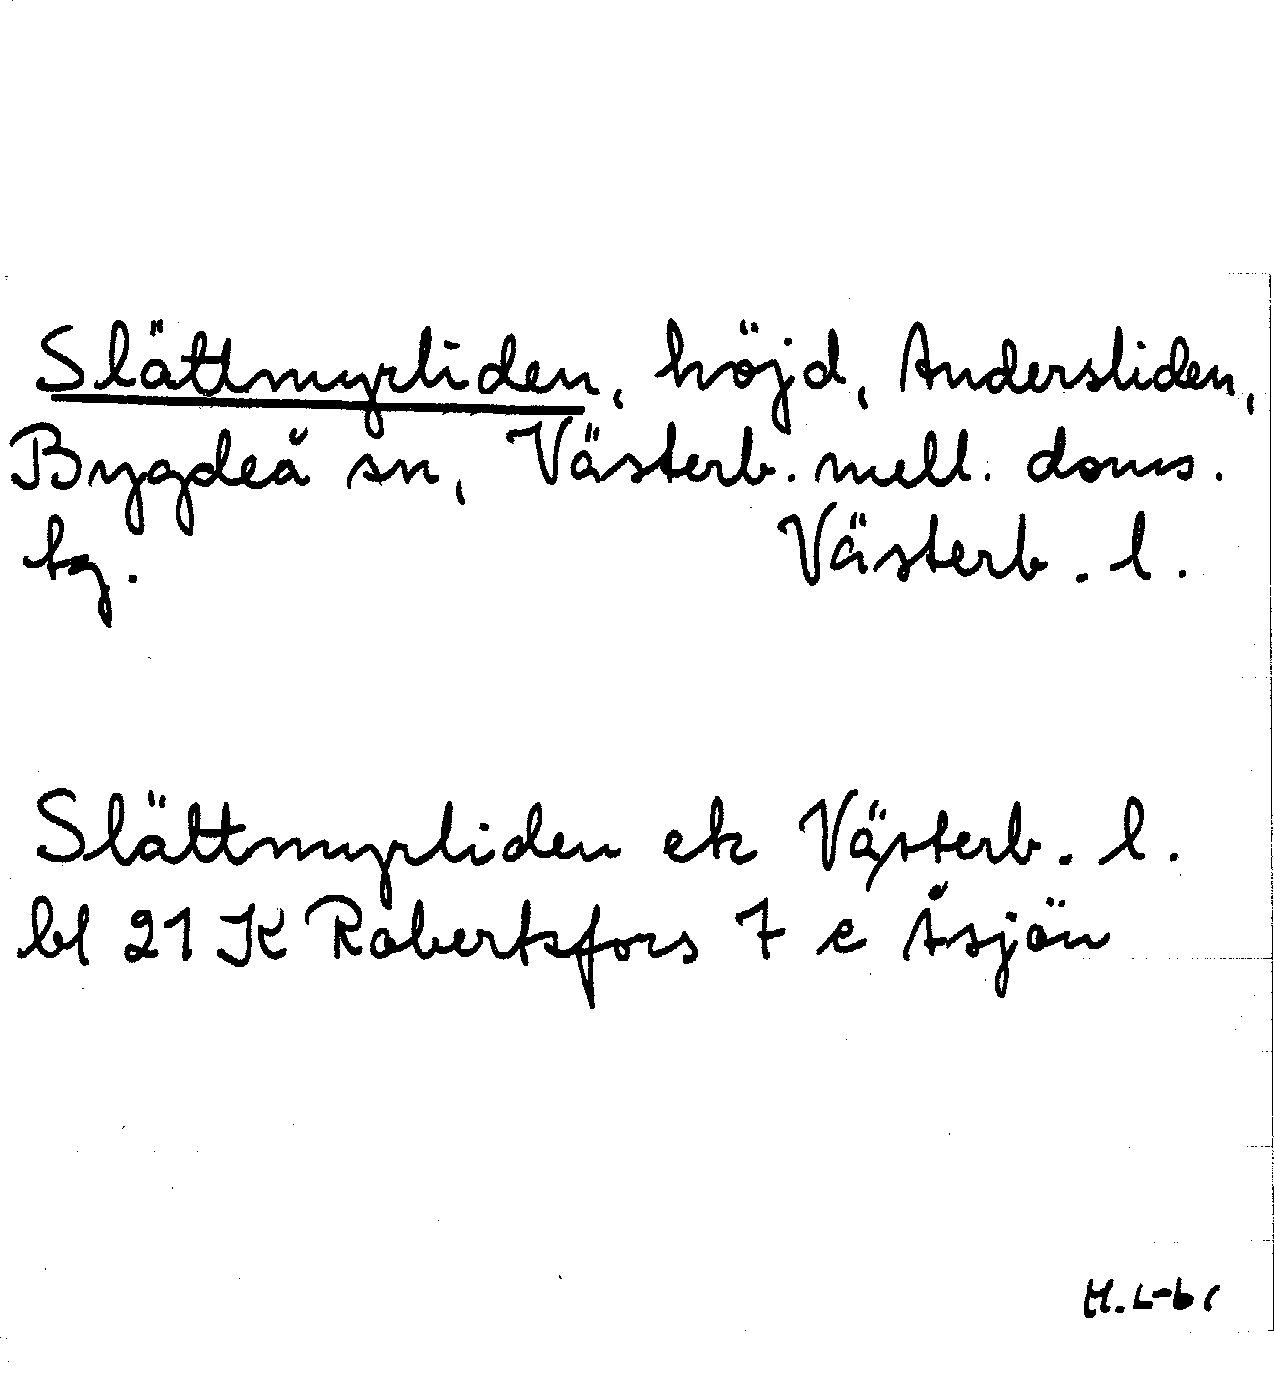 Slättmyrliden, höjd, Andersliden,
Bygdeå sn, Västerb. mell. doms.
tg. Västerb. l.
Slättmyrliden ek Västerb. l.
bl 21 K Robertsfors 7 c Åsjön
H. L-b